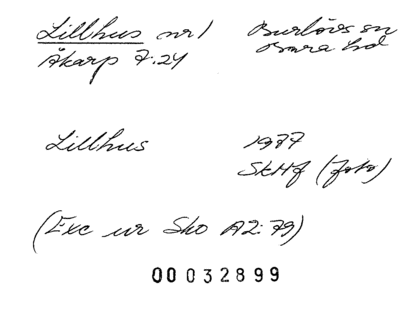 Lillhus nr 1
Åkarp 7:24
Burlövs sn
Bara hd
Lillhus
1977
SkHf (foto)
(Exc ur Sko A2:79)
00032899